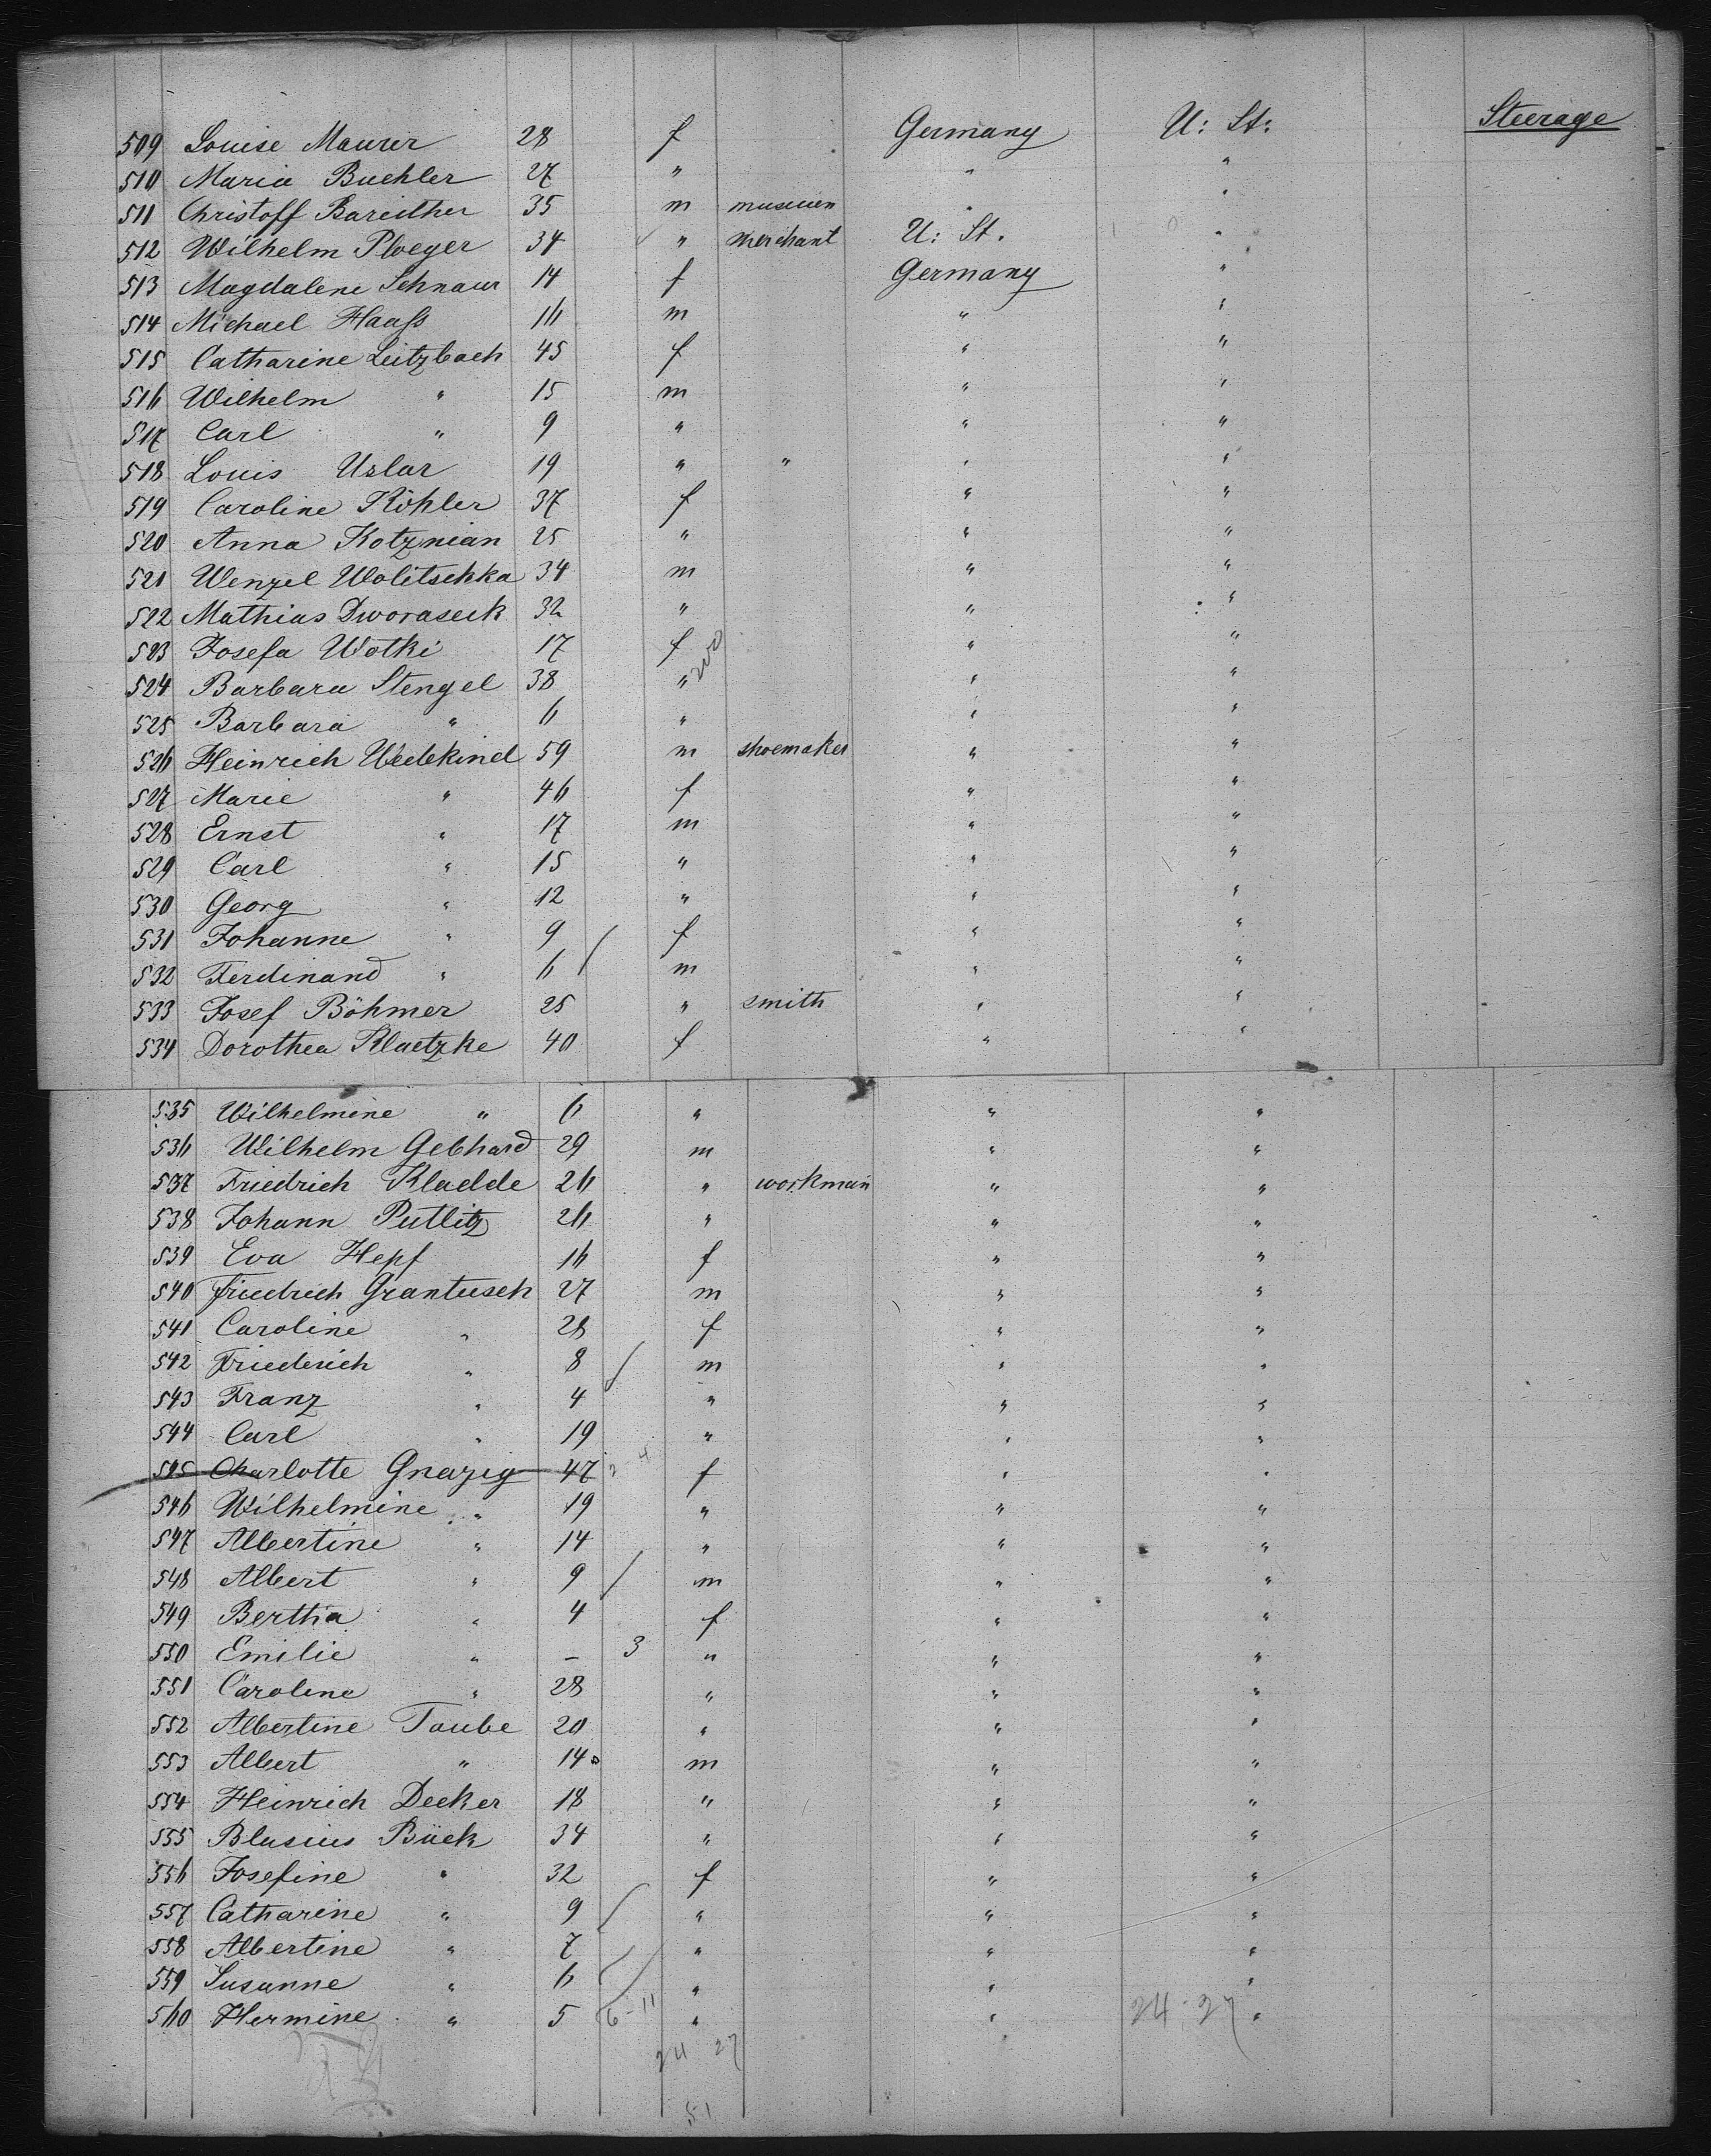 Steerage
509 Louise Maurer 28 f Germany U: St:
510 Maria Buehler 27 " " "
511 Christoff Bareither 35 m " "
512 Wilhelm Ploeger 34 " merchant U: St. "
513 Magdalene Schnaur 14 f Germany "
514 Michael Haaſs 16 m " "
515 Catharine Leitzbach 45 f " "
516 Wilhelm " 15 m " "
517 Carl " 9 " " "
518 Louis Uslar 19 " " " "
519 Caroline Köhler 37 f " "
520 Anna Kotznian 25 " " "
521 Wenzel Wolitschka 34 m " "
522 Mathias Dworaseck 32 " " "
523 Josefa Wotki 17 f " "
524 Barbara Stengel 38 " " "
525 Barbara " 6 " " "
526 Heinrich Wedekind 59 m shoemaker " "
527 Marie " 46 f " "
528 Ernst " 17 m " "
529 Carl " 15 " " "
530 Georg " 12 " " "
531 Johanne " 9 f " "
532 Ferdinand " 6 m " "
533 Josef Böhmer 25 " smith " "
534 Dorothea Klaetzke 40 f " "
535 Wilhelmine " 6 " " "
536 Wilhelm Gebhard 29 m " "
537 Friedrich Kladde 26 " workman " "
538 Johann Putlitz 26 " " "
539 Eva Hepf 16 f " "
540 Friedrich Grantusch 27 m " "
541 Caroline " 28 f " "
542 Friederich " 8 m " "
543 Franz " 4 " " "
544 Carl " 19 " " "
545 Charlotte Gnazig 47 f " "
546 Wilhelmine " 19 " " "
547 Albertine " 14 " " "
548 Albert " 9 m " "
549 Bertha " 4 f " "
550 Emilie " – 3 " " "
551 Caroline " 28 " " "
552 Albertine Taube 20 " " "
553 Albert " 14 m " "
554 Heinrich Decker 18 " " "
555 Blasius Bück 34 " " "
556 Josefine " 32 f " "
557 Catharine " 9 " " "
558 Albertine " 7 " " "
559 Susanne " 6 " " "
560 Hermine " 5 6-11 " " 24.27 "
24 27
51